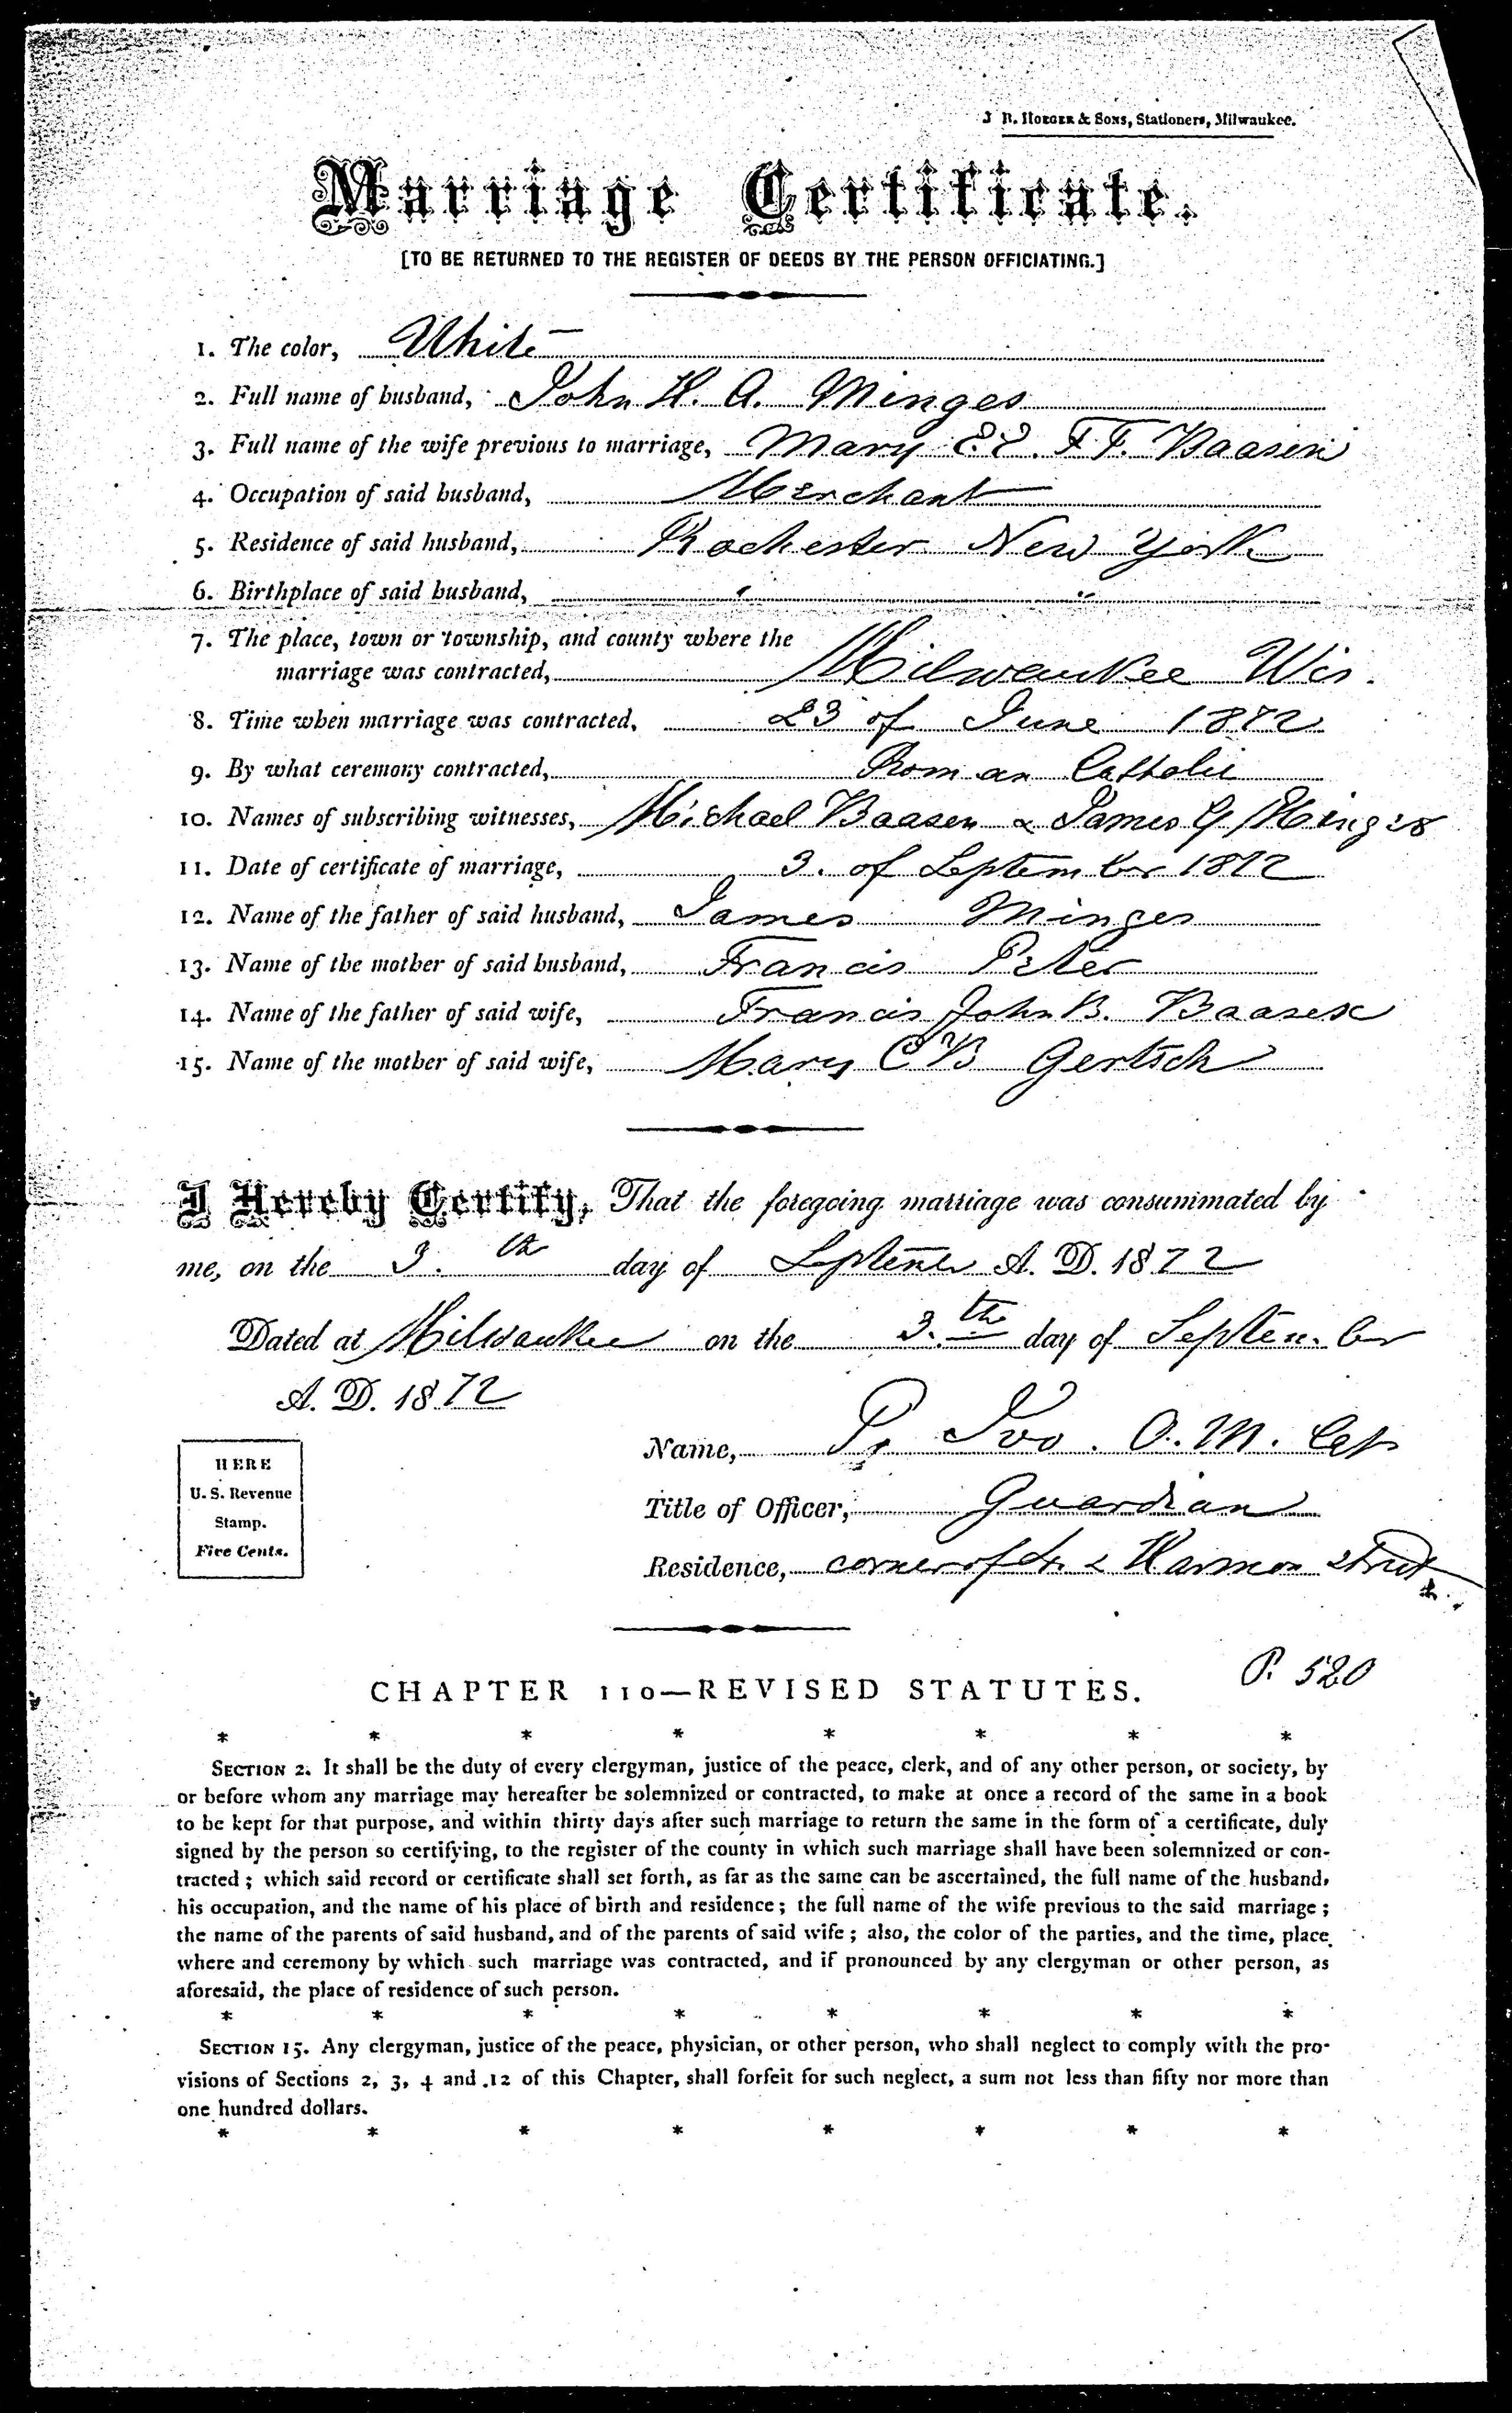 J. B. HOEGER & SONS, Stationers, Milwaukee.
Marriage Certificate.
[TO BE RETURNED TO THE REGISTER OF DEEDS BY THE PERSON OFFICIATING.]
1. The color, White
2. Full name of husband, John H. A. Minges
3. Full name of the wife previous to marriage, Mary F. Baasen
4. Occupation of said husband, Merchant
5. Residence of said husband, Rochester New York
6. Birthplace of said husband, " "
7. The place, town or township, and county where the
marriage was contracted, Milwaukee Wis.
8. Time when marriage was contracted, 23 of June 1872
9. By what ceremony contracted, Roman Catholic
10. Names of subscribing witnesses, Michael Baasen & James G Minges
11. Date of certificate of marriage, 3. of September 1872
12. Name of the father of said husband, James Minges
13. Name of the mother of said husband, Francis Peter
14. Name of the father of said wife, Francis John B. Baasen
15. Name of the mother of said wife, Mary C B Gertsch
I Hereby Certify, That the foregoing marriage was consummated by
me, on the 3. th day of September A. D. 1872
Dated at Milwaukee on the 3. th day of September
A. D. 1872
HERE
U. S. Revenue
Stamp.
Five Cents.
Name, P. Ivo. O. M. Cap
Title of Officer, Guardian
Residence, corner of 4. & Harmon street
P. 520
CHAPTER 110—REVISED STATUTES.
* * * * * * * *
SECTION 2. It shall be the duty of every clergyman, justice of the peace, clerk, and of any other person, or society, by
or before whom any marriage may hereafter be solemnized or contracted, to make at once a record of the same in a book
to be kept for that purpose, and within thirty days after such marriage to return the same in the form of a certificate, duly
signed by the person so certifying, to the register of the county in which such marriage shall have been solemnized or con-
tracted; which said record or certificate shall set forth, as far as the same can be ascertained, the full name of the husband,
his occupation, and the name of his place of birth and residence; the full name of the wife previous to the said marriage;
the name of the parents of said husband, and of the parents of said wife; also, the color of the parties, and the time, place
where and ceremony by which such marriage was contracted, and if pronounced by any clergyman or other person, as
aforesaid, the place of residence of such person.
* * * * * * * *
SECTION 15. Any clergyman, justice of the peace, physician, or other person, who shall neglect to comply with the pro-
visions of Sections 2, 3, 4 and 12 of this Chapter, shall forfeit for such neglect, a sum not less than fifty nor more than
one hundred dollars.
* * * * * * * *